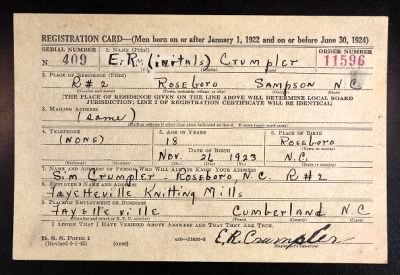 REGISTRATION CARD—(Men born on or after January 1, 1922 and on or before June 30, 1924)
SERIAL NUMBER 1. NAME (Print) ORDER NUMBER
N 409 E. R. (initials) Crumpler 11596
2. PLACE OF RESIDENCE (Print)
R#2 Roseboro Sampson N.C.
[THE PLACE OF RESIDENCE GIVEN ON THE LINE ABOVE WILL DETERMINE LOCAL BOARD
JURISDICTION; LINE 2 OF REGISTRATION CERTIFICATE WILL BE IDENTICAL]
3. MAILING ADDRESS
(same)
4. TELEPHONE 5. AGE IN YEARS 6. PLACE OF BIRTH
(NONE) 18 Roseboro
DATE OF BIRTH
Nov. 26 1923 N.C.
7. NAME AND ADDRESS OF PERSON WHO WILL ALWAYS KNOW YOUR ADDRESS
S.M. Crumpler Roseboro, N.C. R#2
8. EMPLOYER'S NAME AND ADDRESS
Fayetteville Knitting Mills
9. PLACE OF EMPLOYMENT OR BUSINESS
Fayetteville Cumberland N C
I AFFIRM THAT I HAVE VERIFIED ABOVE ANSWERS AND THAT THEY ARE TRUE.
D. S. S. Form 1 E.R. Crumpler
(over)